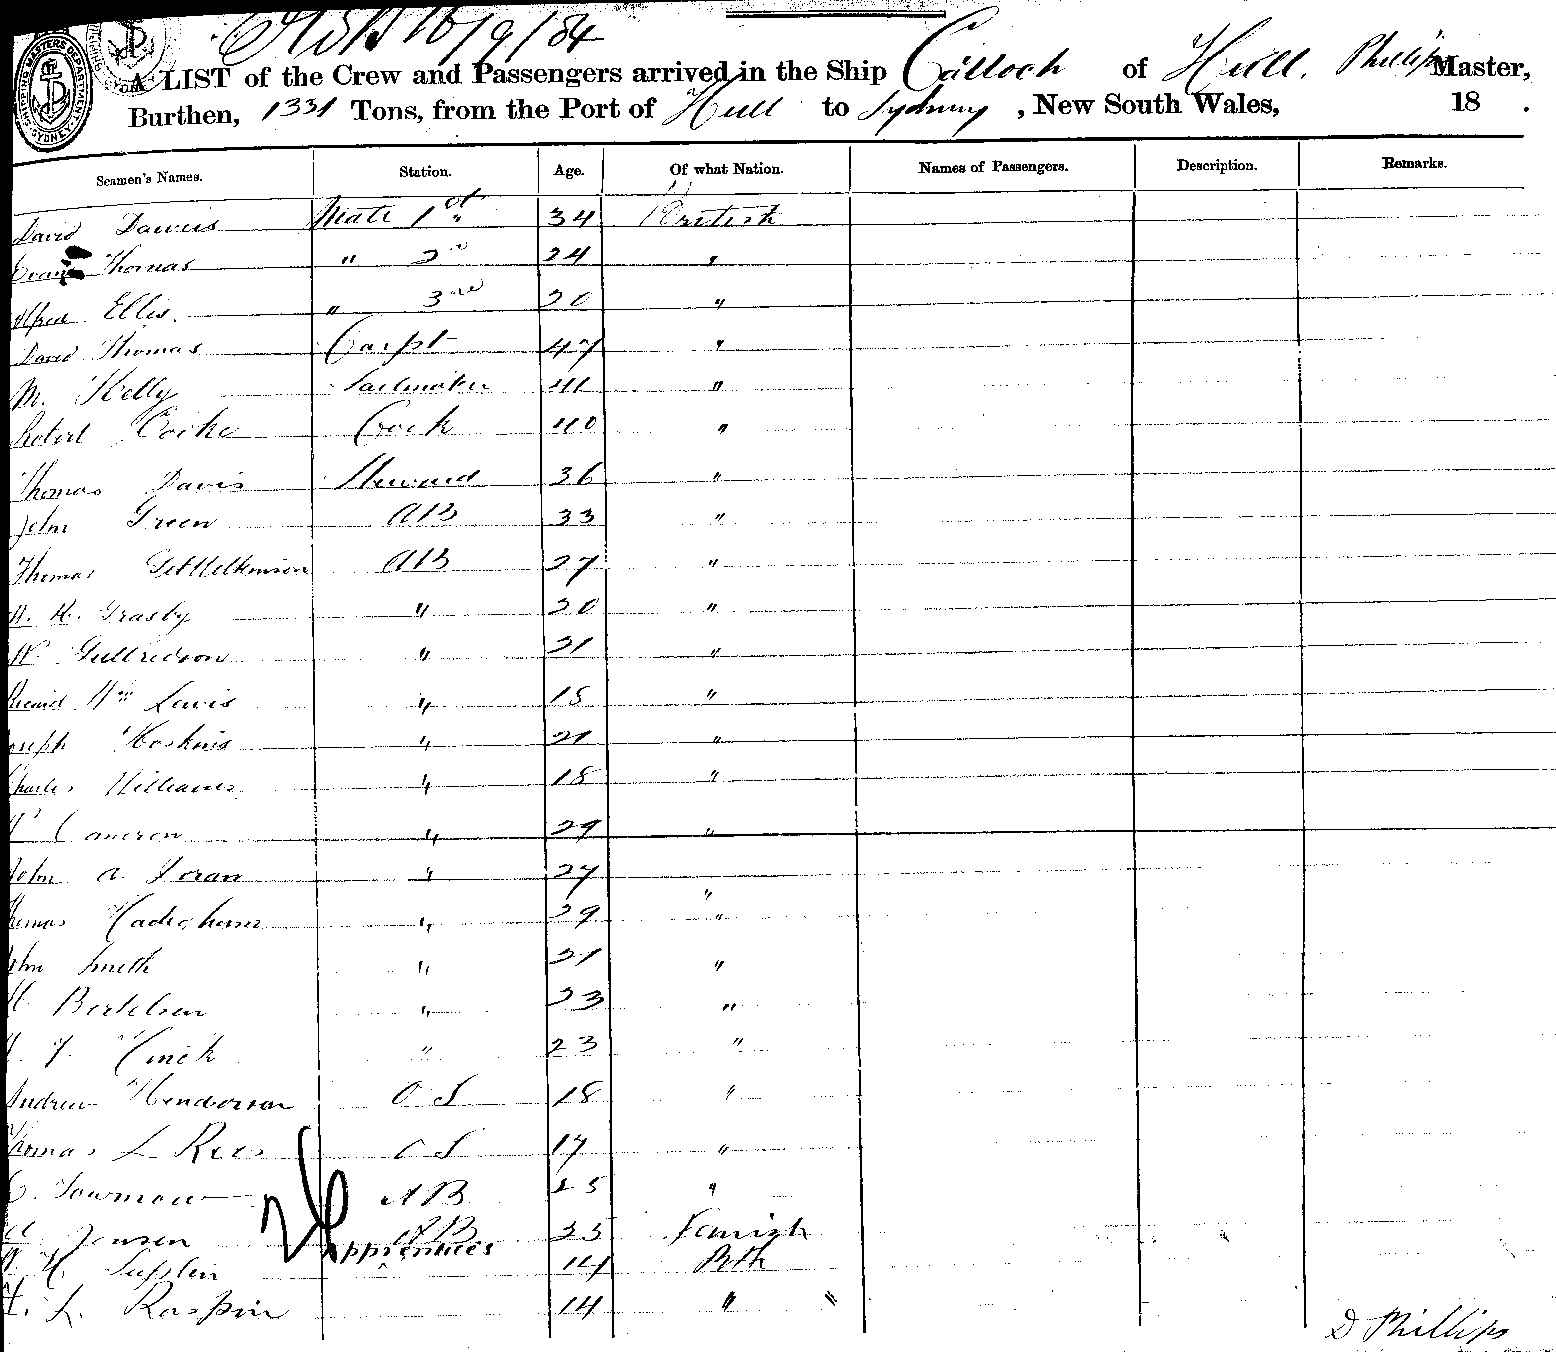 16/9/84
A LIST of the Crew and Passengers arrived in the Ship Cailloch of Hull, Phillips Master,
Burthen, 1331 Tons, from the Port of Hull to Sydney, New South Wales, 18 .
Seamen's Names. Station. Age. Of what Nation. Names of Passengers. Description. Remarks.
David Davies Mate 1st 34 British
Evan Thomas " 2nd 24 "
Alfred Ellis. " 3rd 20 "
David Thomas Carpt 47 "
M. Kelly Sailmaker 41 "
Robert Cooke Cook 40 "
Thomas Davis Steward 36 "
John Green AB 33 "
Thomas AB 27 "
H. Grasby " 20 "
W. " 21 "
Wm Lewis " 18 "
Joseph Hoskins " 21 "
Charles Williams " 18 "
Cameron " 29 "
John A. Doran " 27 "
Thomas " 29 "
John Smith " 21 "
Bertelsen " 23 "
" 23 "
Andrew Henderson O S 18 "
Thomas L Rees O S 17 "
AB 25 "
Jensen AB 23 Danish
Apprentices
H. 14 Btth
L. Raspin 14 " "
D Phillips